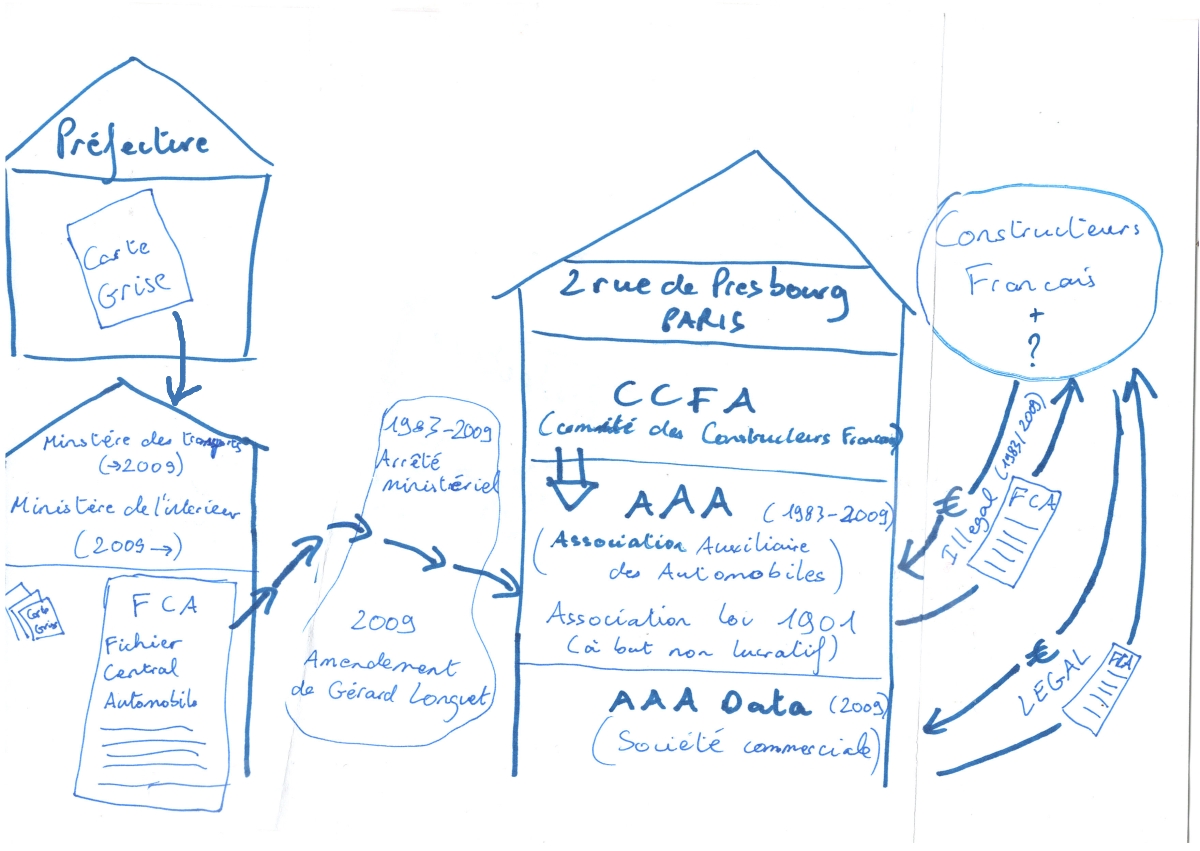 Préfecture
Carte
Grise
Minstére des transports
(→2009)
Ministère de l'intérieur
(2009→)
Carte
Grise
FCA
Fichier
Central
Automobile
1983-2009
Arrêté
ministériel
2009
Amendement
de Gérard Longuet
2 rue de Presbourg
PARIS
CCFA
(comité des Constructeurs Francais)
AAA (1983-2009)
(Association Auxiliaire
des Automobiles)
Association loi 1901
(à but non lucratif)
AAA Data (2009)
(Société commerciale)
Constructeurs
Francais
+
?
€
Illegal (1983/2009)
FCA
€
LEGAL
FCA